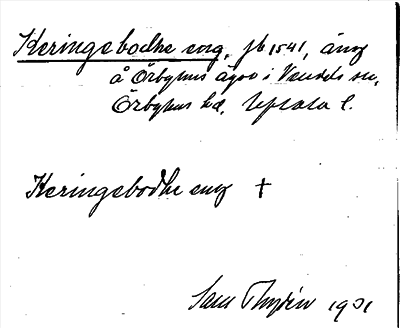 Keringsbodhe eng, jb 1541, äng
å Örbyhus ägor i Vendels sn,
Örbyhus hd, Uppsala l.
Keringsbodhe eng †
Sam Thyrén 1901